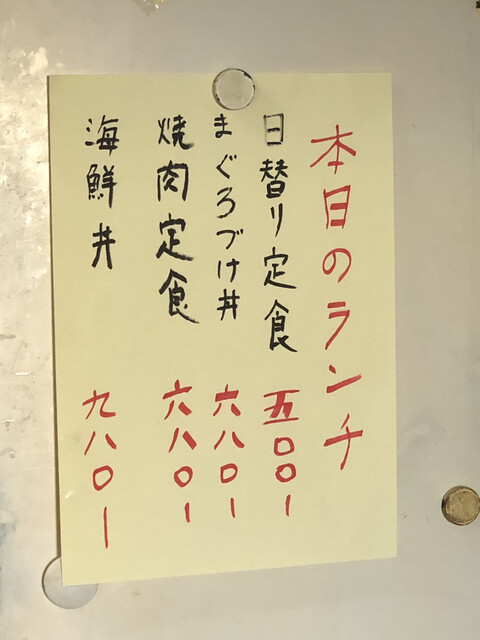 本日のランチ
日替り定食 五〇〇ー
まぐろづけ丼 六八〇ー
焼肉定食 六八〇ー
海鮮丼 九八〇ー